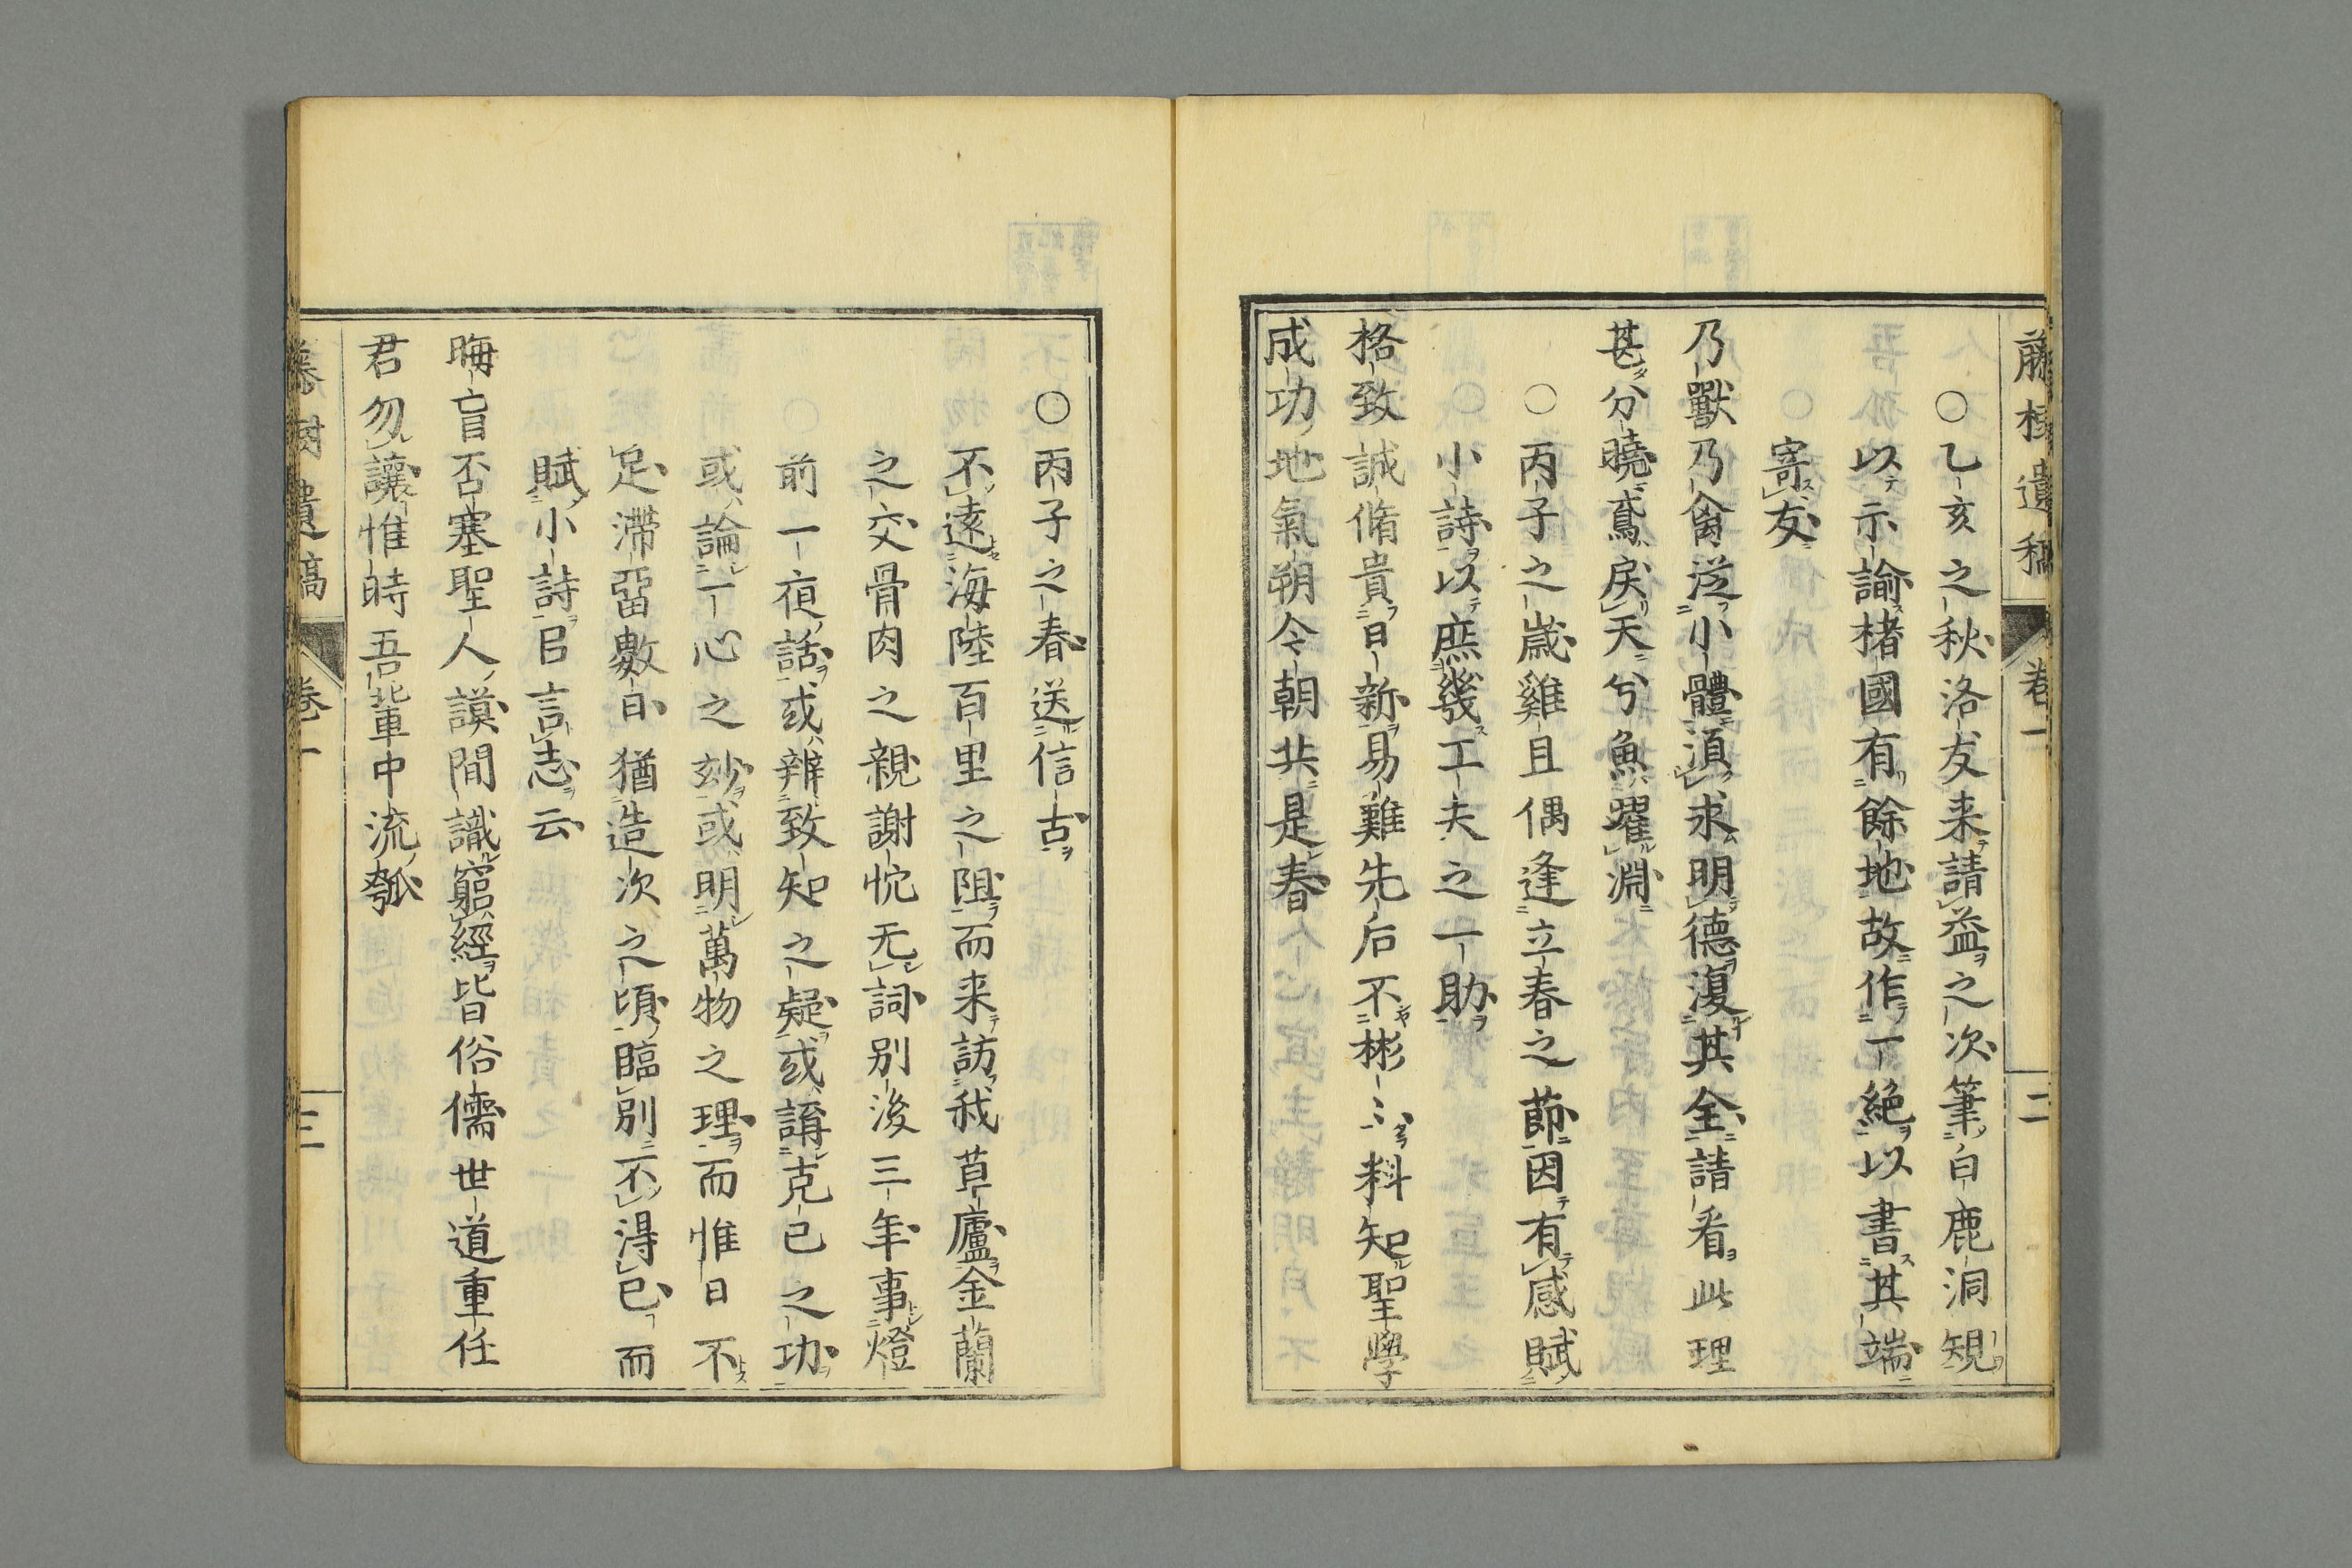 藤樹遺稿 卷一 二
○乙亥之秋洛友来請益之次筆白鹿洞規
以示諭楮國有餘地故作一絶以書其端
寄友
乃獸乃禽泣小體湏求明德復其全請看此理
甚分曉鳶戾天兮魚躍淵
○丙子之歲雞旦偶逢立春之莭因有感賦
小詩以庶幾工夫之一助
格致誠脩貴日新易難先后不彬〻料知聖學
成功地氣朔今朝共是春
○丙子之春送信古
不遠海陸百里之阻而来訪我草廬金蘭
之交骨肉之親謝忱无詞别後三年事燈
前一夜話或辨致知之疑或講克己之功
或論一心之玅或明萬物之理而惟日不
足滯畱數日猶造次之頃臨别不得已而
賦小詩㠯言志云
晦盲否塞聖人謨間識窮經皆俗儒世道重任
君勿讓惟時吾軰中流瓠
藤樹遺稿 卷一 三